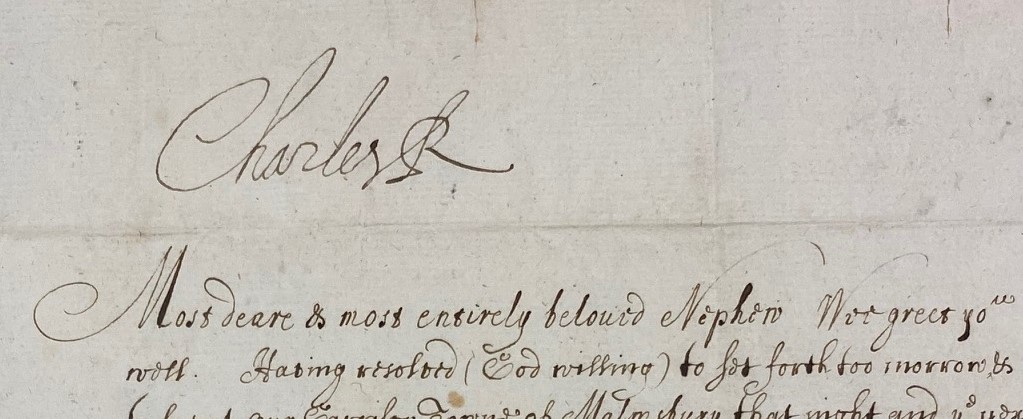 Charles R
Most deare & most entirely beloued Nephew Wee greet yo^w
well. Having resolved (God willing) to set forth too morrow &
our Towne of Malmsbury that night and y^e